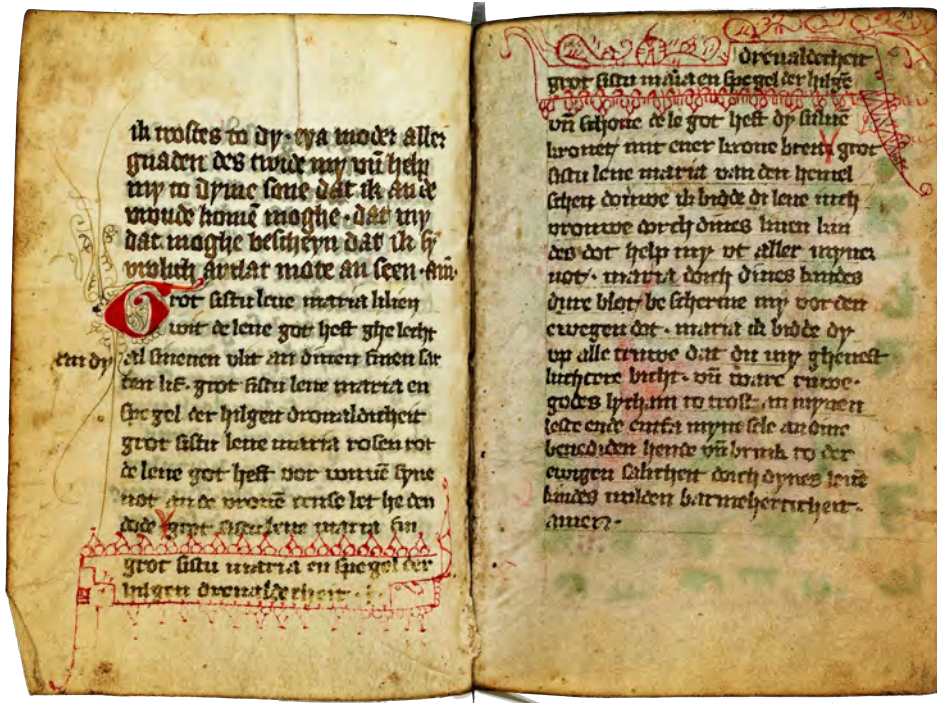 ik trostes to dy · eya moder aller
gnaden des twide my vn̄ help
my to dyme sone dat ik an de
vroude komē moghe · dat my
dat moghe bescheyn dat ik sy
vrolich an seen · am̄
Grot sistu leue maria lilien
wit de leue got heft ghe lecht
al sinenen vlit an dinen finen
ten lif · grot sistu leue maria en
spegel der hilgen dreualdicheit
grot sistu leue maria rosen rot
de leue got heft dor syne
not an de vronē let he den
dode grot sistu leue maria
grot sistu maria en spegel der
hilgen dreualdecheit ·
dreualdecheit
grot sistu maria en spegel der hilgē
vn̄ schone de le got heft dy
kronet mit ener krone breit grot
sistu leue maria van den hemel
schen douwe ik bidde di leue
vrouwe dorch dines kin
des dot help my vt aller myner
not · maria dorch dines kindes
dure blot be scherme my vor den
ewegen dot · maria ik bidde dy
vp alle truwe dat du my gheuest
luchtere bicht · vn̄ ware ruwe ·
godes lycham to trost an mynen
leste ende myne sele an dine
benediden hende vn̄ brink to der
ewigen salicheit dorch dynes leuē
kindes milden barmeherticheit ·
amen ·